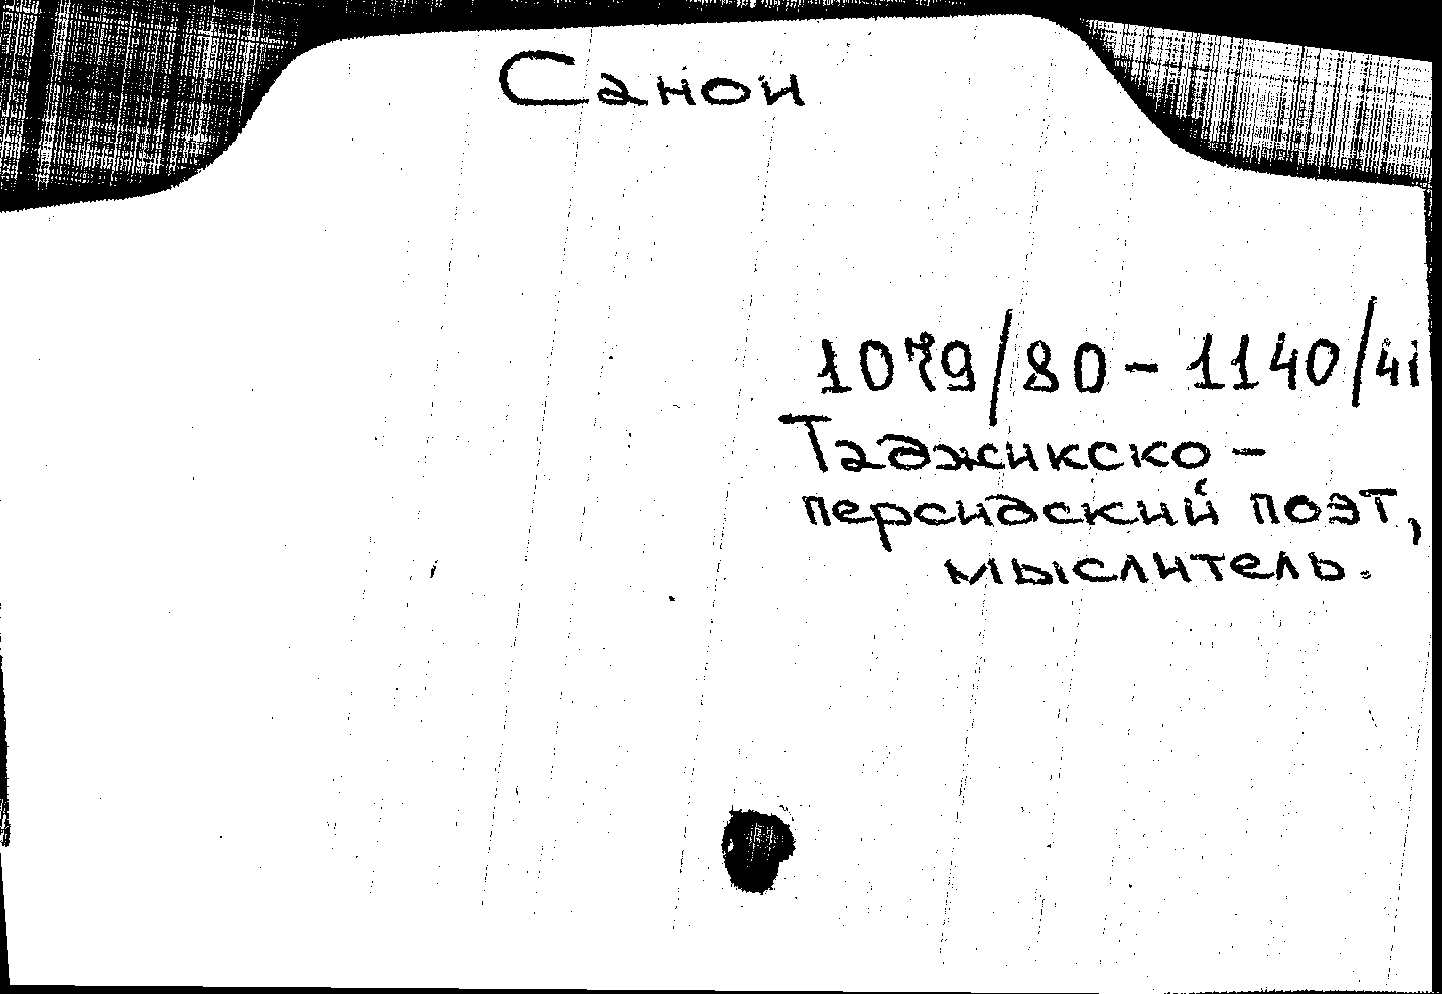 Санои
1079/80 - 1140/41
Таджикско -
персидский поэт,
мыслитель.